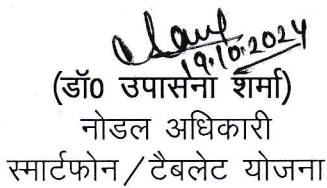 19.10.2024
(डॉ0 उपासना शर्मा)
नोडल अधिकारी
स्मार्टफोन/टैबलेट योजना